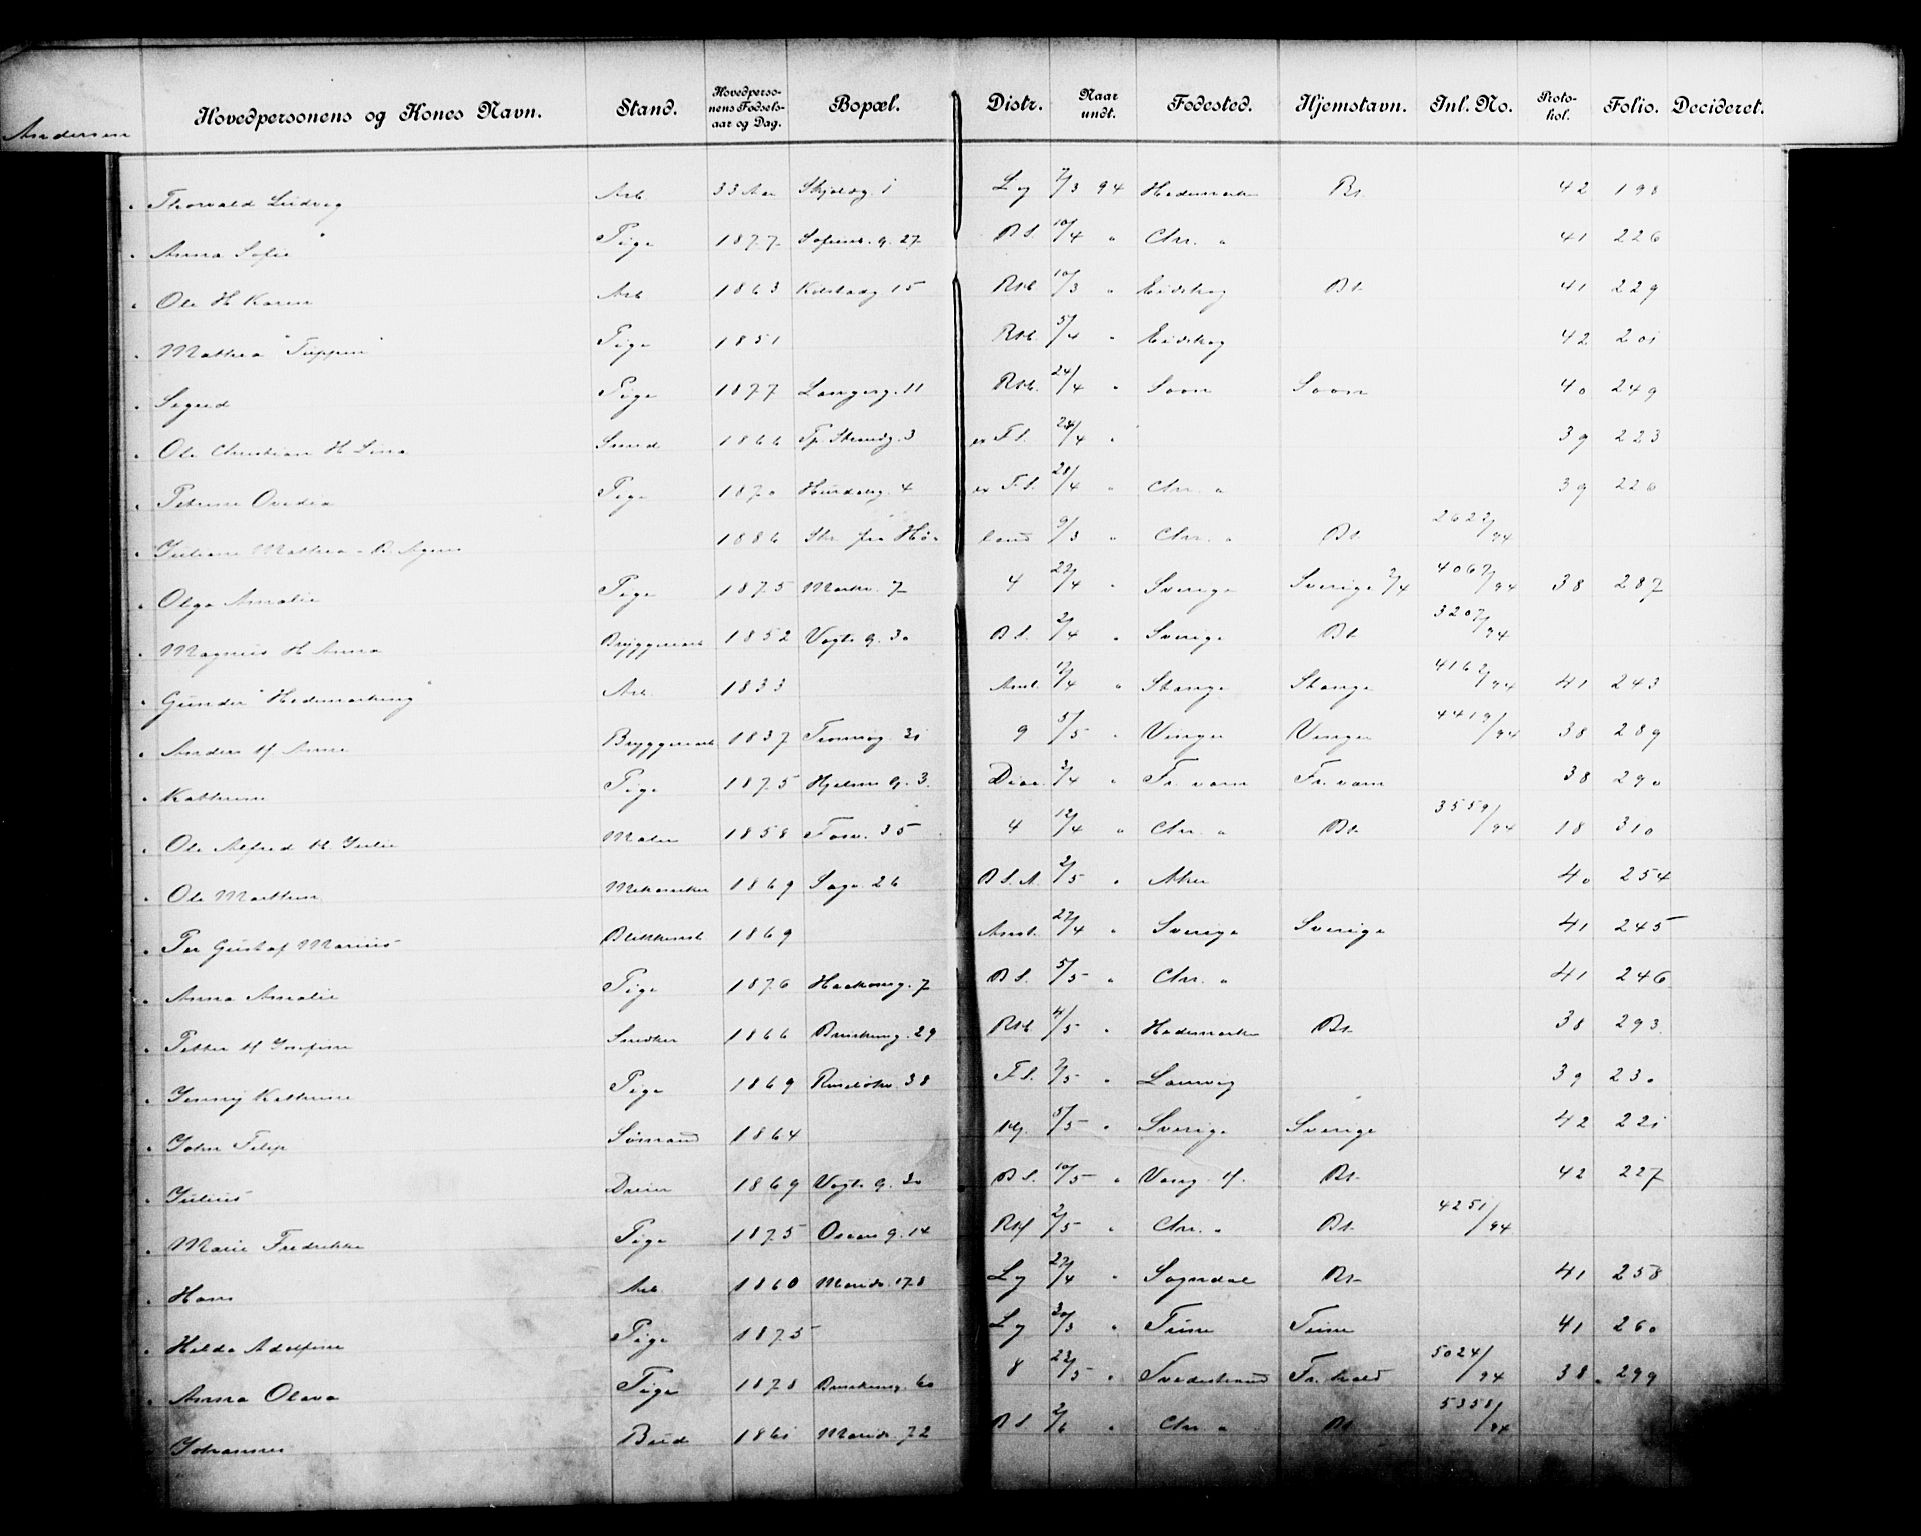 Andersen
Hovedpersonens og Kones Navn. Stand. Hovedpersonens Fødselsaar og Dag. Bopæl. Distr. Naar undt. Fødested. Hjemstavn. Inl. No. Protokol. Folio. Decideret.
" Thorvald Ludvig Arb 33 Aar 1 Lg 7/3 94 Hedemarken Bt. 42 198
" Anna Sofie Pige 1877 Sofienb. g. 27 B S. 10/4 " Chr. " 41 226
" Ole H Karen Arb 1863 15 Rtb. 10/3 " Eidskog Bt. 41 229
" Mathea "Tuppen" Pige 1851 Rtb. 5/4 " Eidskog 42 201
" Sigrid Pige 1877 Langesg. 11 Rtb. 24/4 " Soon Soon 40 249
" Ole Christian H Lina Smed 1866 Tp. Strandg. 3 F S. 24/4 " 39 223
" Petrine Ovedia Pige 1870 Hurdalsg. 4 F S. 28/4 " Chr. " 39 226
" Juliane Mathea - B. Agnes 1886 Skr. fra 9/3 " Chr. " Bt. 2622/94
" Olga Amalie Pige 1875 Markv. 7 4 23/4 " Sverige Sverige 2/4 4067/94 38 287
" Magnus H Anna Bryggeriarb 1852 Vogts g. 30 B S. 2/4 " Sverige Bt. 3207/94
" Gunder "Hedemarking" Arb. 1833 Anst. 12/4 " Stange Stange 4162/94 41 243
" Anders H. Anne Bryggeriarb 1837 31 9 5/5 " Vinger Vinger 4419/94 38 289
" Kathrine Pige 1875 Hjelms g. 3. 2/4 " Fr. værn Fr. værn 38 290
" Ole Alfred H Julie Maler 1858 Fosv. 35 4 12/4 " Chr. " Bt. 3559/94 18 310
" Ole Marthin Mekaniker 1869 Sagv. 26 B S. A. 2/5 " Aker 40 254
" Per Gustaf Marius Blikkensl. 1869 Anst. 27/4 " Sverige Sverige 41 245
" Anna Amalie Pige 1876 Haakonsg. 7 B S. 5/5 " Chr. " 41 246
" Petter H Josefine Snedker 1866 Brinkeng. 29 Rtb. 4/5 " Hedemarken Bt. 38 293
" Jenny Kathrine Pige 1869 Ruseløkv. 38 F S. 7/5 " Laurvig 39 230
" John Filip Sømand 1864 5/5 " Sverige Sverige 42 221
" Julius Dreier 1869 Vogts g. 30 B S. 10/5 " Vang H. Bt. 42 227
" Marie Fredrikke Pige 1875 Oscars g. 14 2/5 " Chr. " Bt. 4251/94
" Hans Arb. 1860 Marids. 178 Lg 27/4 " Sogndal Bt. 41 258
" Hilda Adolfine Pige 1875 Lg 30/3 " Tune Tune 41 260
" Anna Olava Pige 1878 Brinkeng. 60 8 22/5 " Tvedestrand Fr. hald 5024/94 38 299
" Johannes Bud 1861 Marids. 72 B S. 2/6 " Chr. " Bt. 5358/94